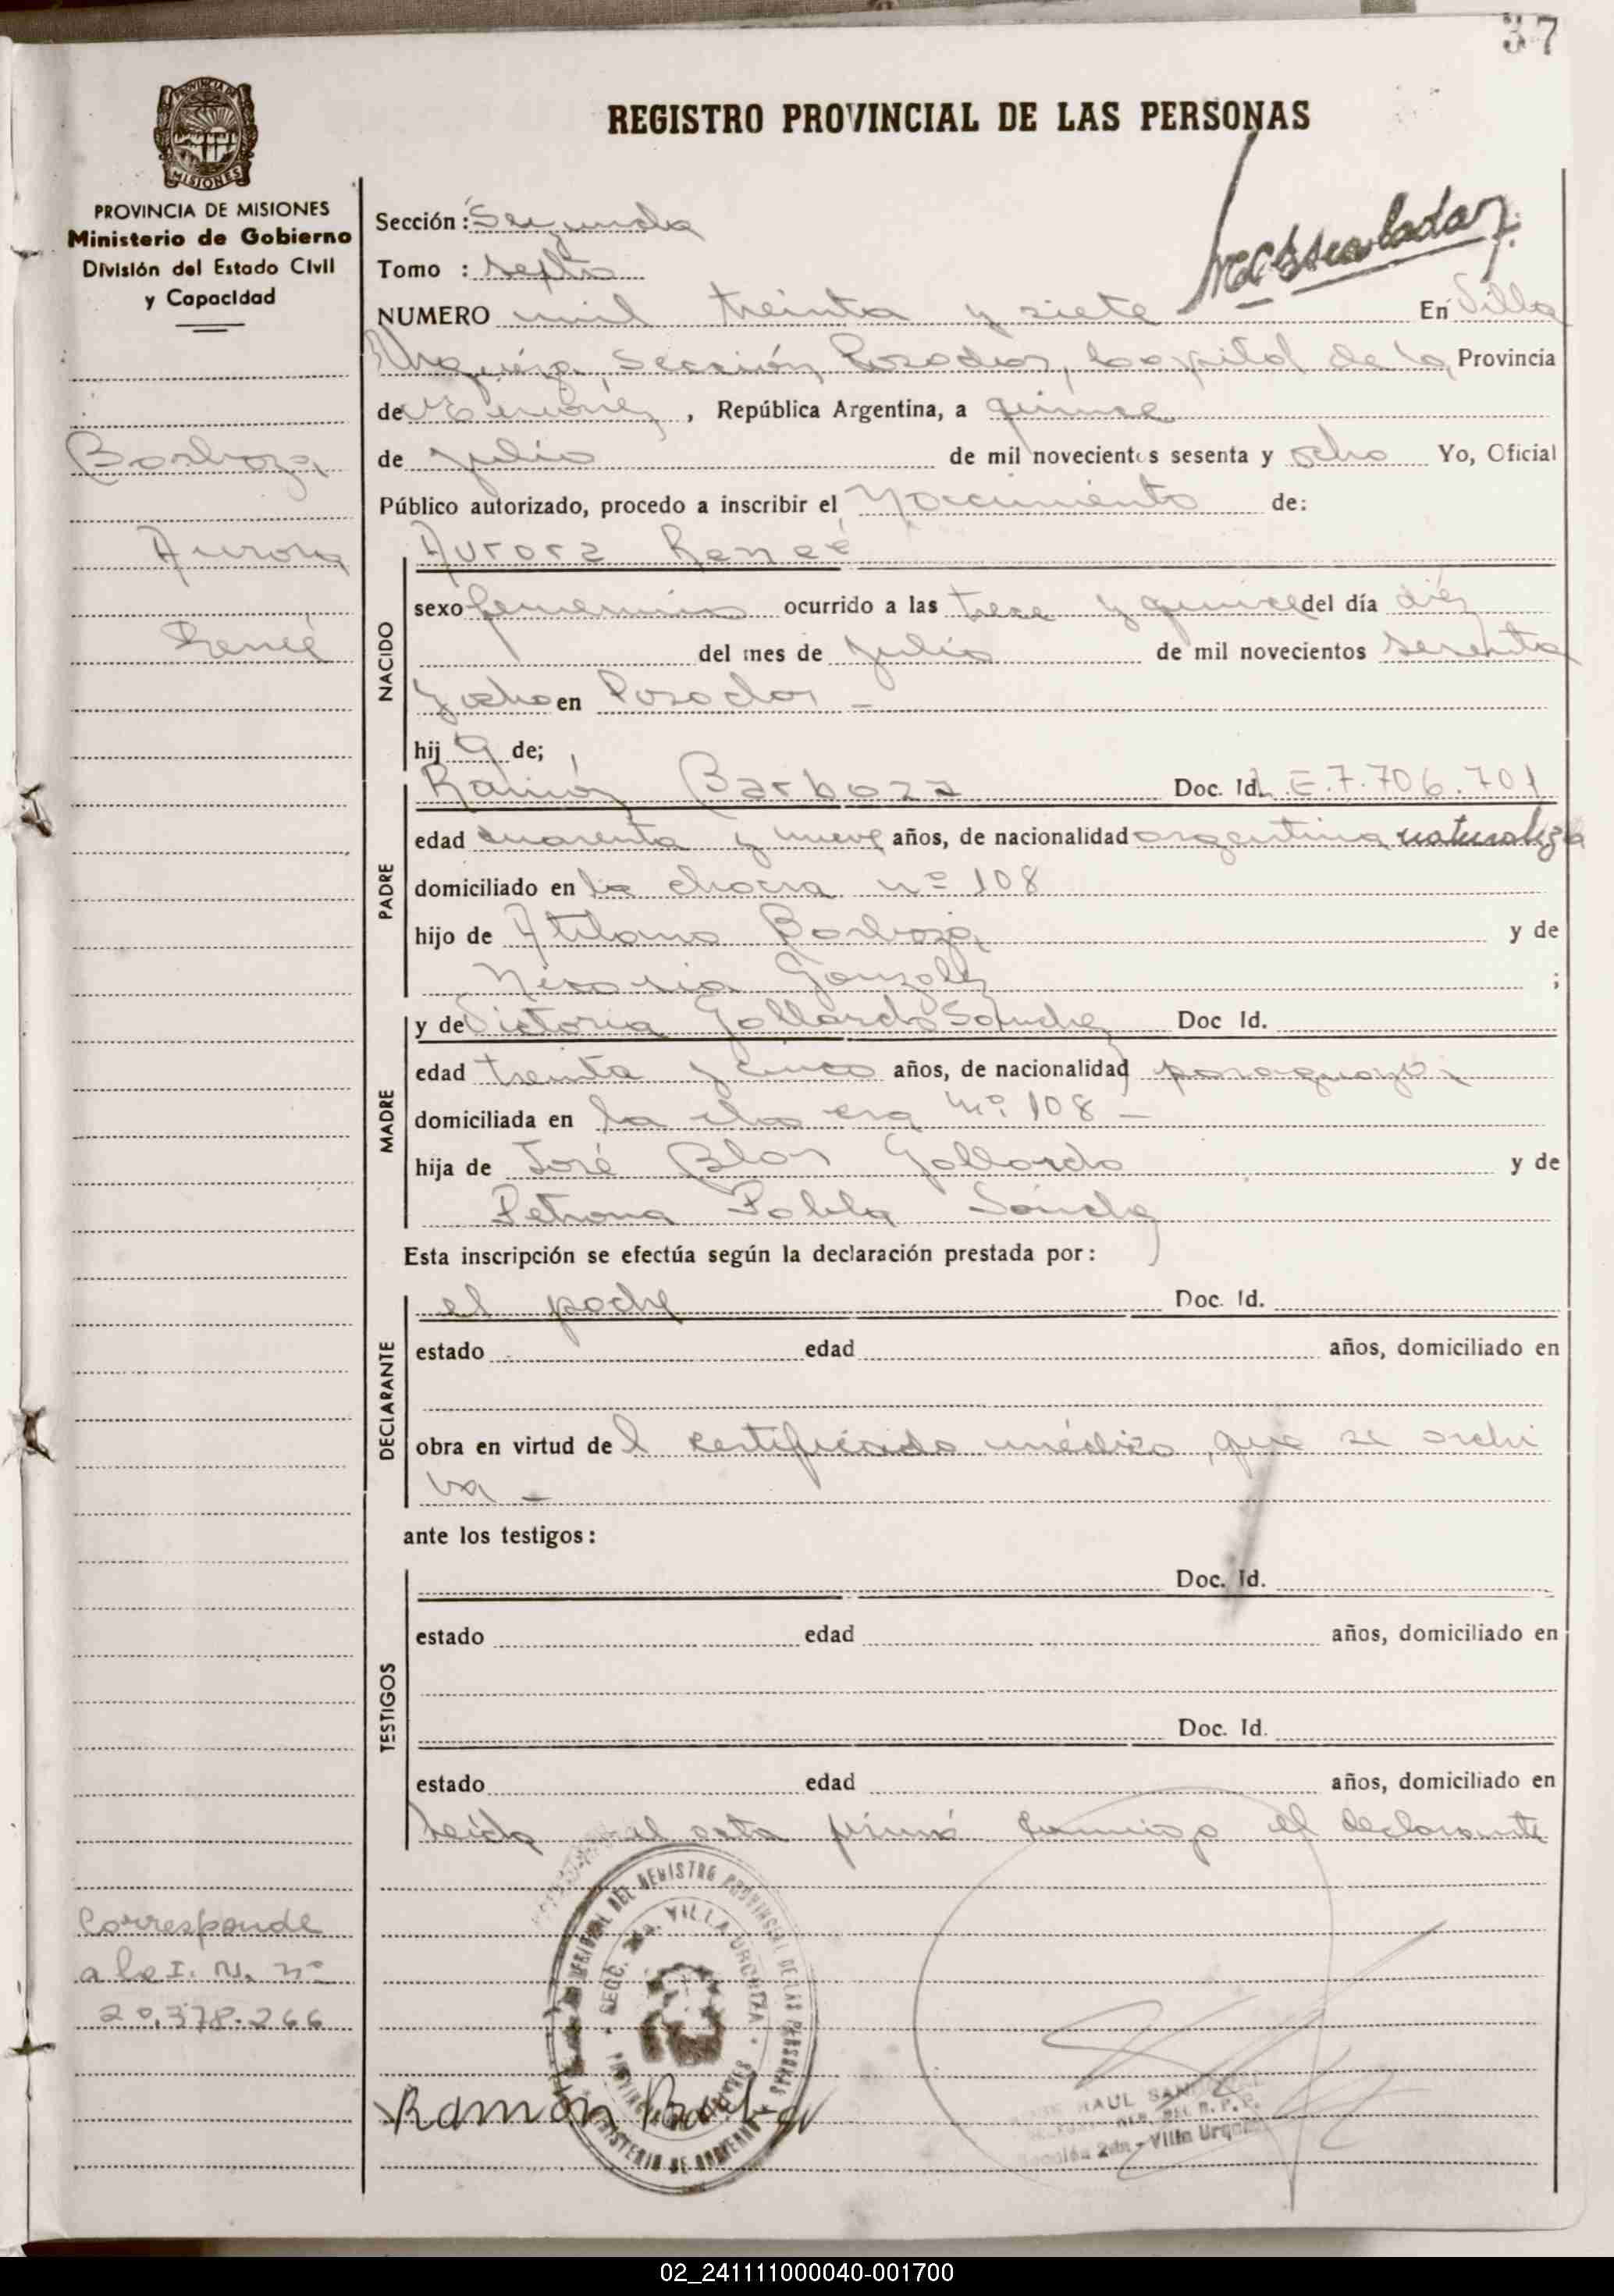 37
REGISTRO PROVINCIAL DE LAS PERSONAS
PROVINCIA DE MISIONES
MISIONES
PROVINCIA DE MISIONES
Ministerio de Gobierno
División del Estado Civil
y Capacidad
Sección: Segunda
Tomo : septo
NUMERO mil treinta y siete En Villa
Urquiza, Sección Posadas, Capital de la Provincia
de Misiones, República Argentina, a quince
de julio de mil novecientos sesenta y ocho Yo, Oficial
Público autorizado, procedo a inscribir el Nacimiento de:
Barboza
Aurora
Reneé
NACIDO
Aurora Reneé
sexo femenino ocurrido a las trece y quince del día diéz
del mes de julio de mil novecientos sesenta
y ocho en Posadas -
hija de;
PADRE
Ramón Barboza Doc. Id. L.E.7.706.701
edad cuarenta y nueve años, de nacionalidad argentina naturaliza
domiciliado en la chacra nº 108
hijo de Atilano Barboza y de
González ;
MADRE
y de Victoria Gallardo Sánchez Doc Id.
edad treinta y cinco años, de nacionalidad paraguaya
domiciliada en la chacra Nº 108 -
hija de José Blas Gallardo y de
Petrona Pabla Sánchez
Esta inscripción se efectúa según la declaración prestada por:
DECLARANTE
el padre Doc. Id.
estado edad años, domiciliado en
obra en virtud del certificado médico, que se archi
va -
ante los testigos:
TESTIGOS
Doc. Id.
estado edad años, domiciliado en
Doc. Id.
estado edad años, domiciliado en
Leída el acta firmó conmigo el declarante
Corresponde
a la I. N. nº
20.378.266
DEL REGISTRO PROVINCIAL DE LAS PERSONAS
SECC. 2da. VILLA URQUIZA
MINISTERIO DE GOBIERNO
Ramón Barboza
RAUL
DEL R. P. P.
Sección 2da - Villa Urquiza
02_241111000040-001700